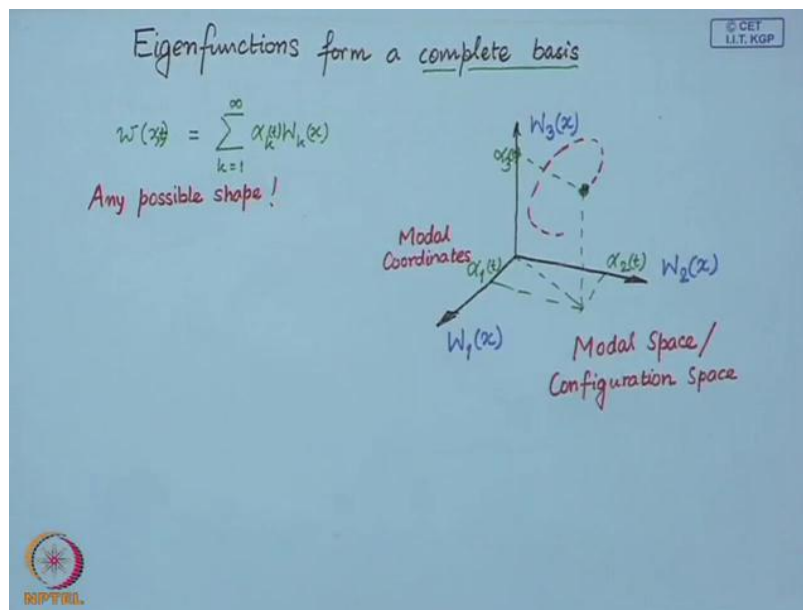 Eigenfunctions form a complete basis
© CET
I.I.T. KGP
w(x,t) = ∑_{k=1}^{∞} α_k(t) W_k(x)
Any possible shape!
W₃(x)
α₃(t)
Modal
Coordinates
α₁(t)
α₂(t)
W₂(x)
W₁(x)
Modal Space/
Configuration Space
NPTEL